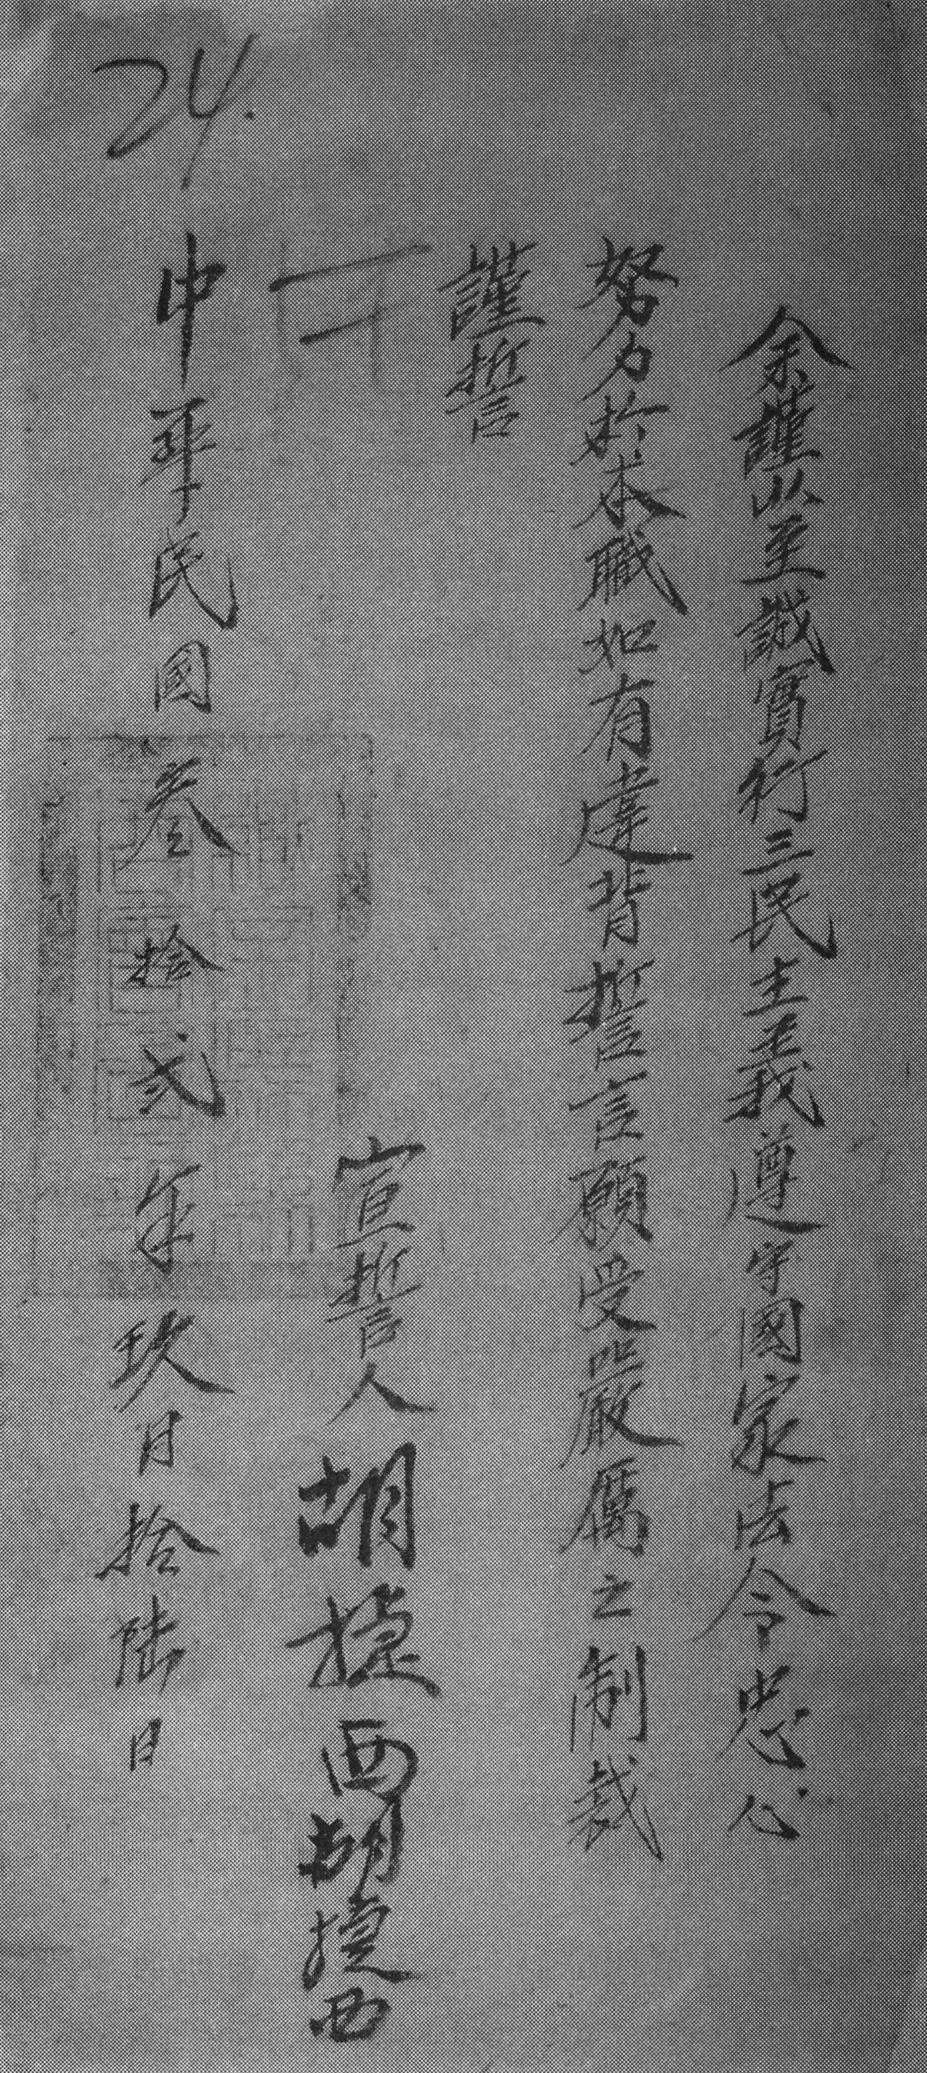 余謹以至誠實行三民主義遵守國家法令忠心
努力於本職如有違背誓言願受嚴厲之制裁
謹誓
宣誓人胡捷西胡捷西
中華民國叁拾弍年玖月拾陸日
24.